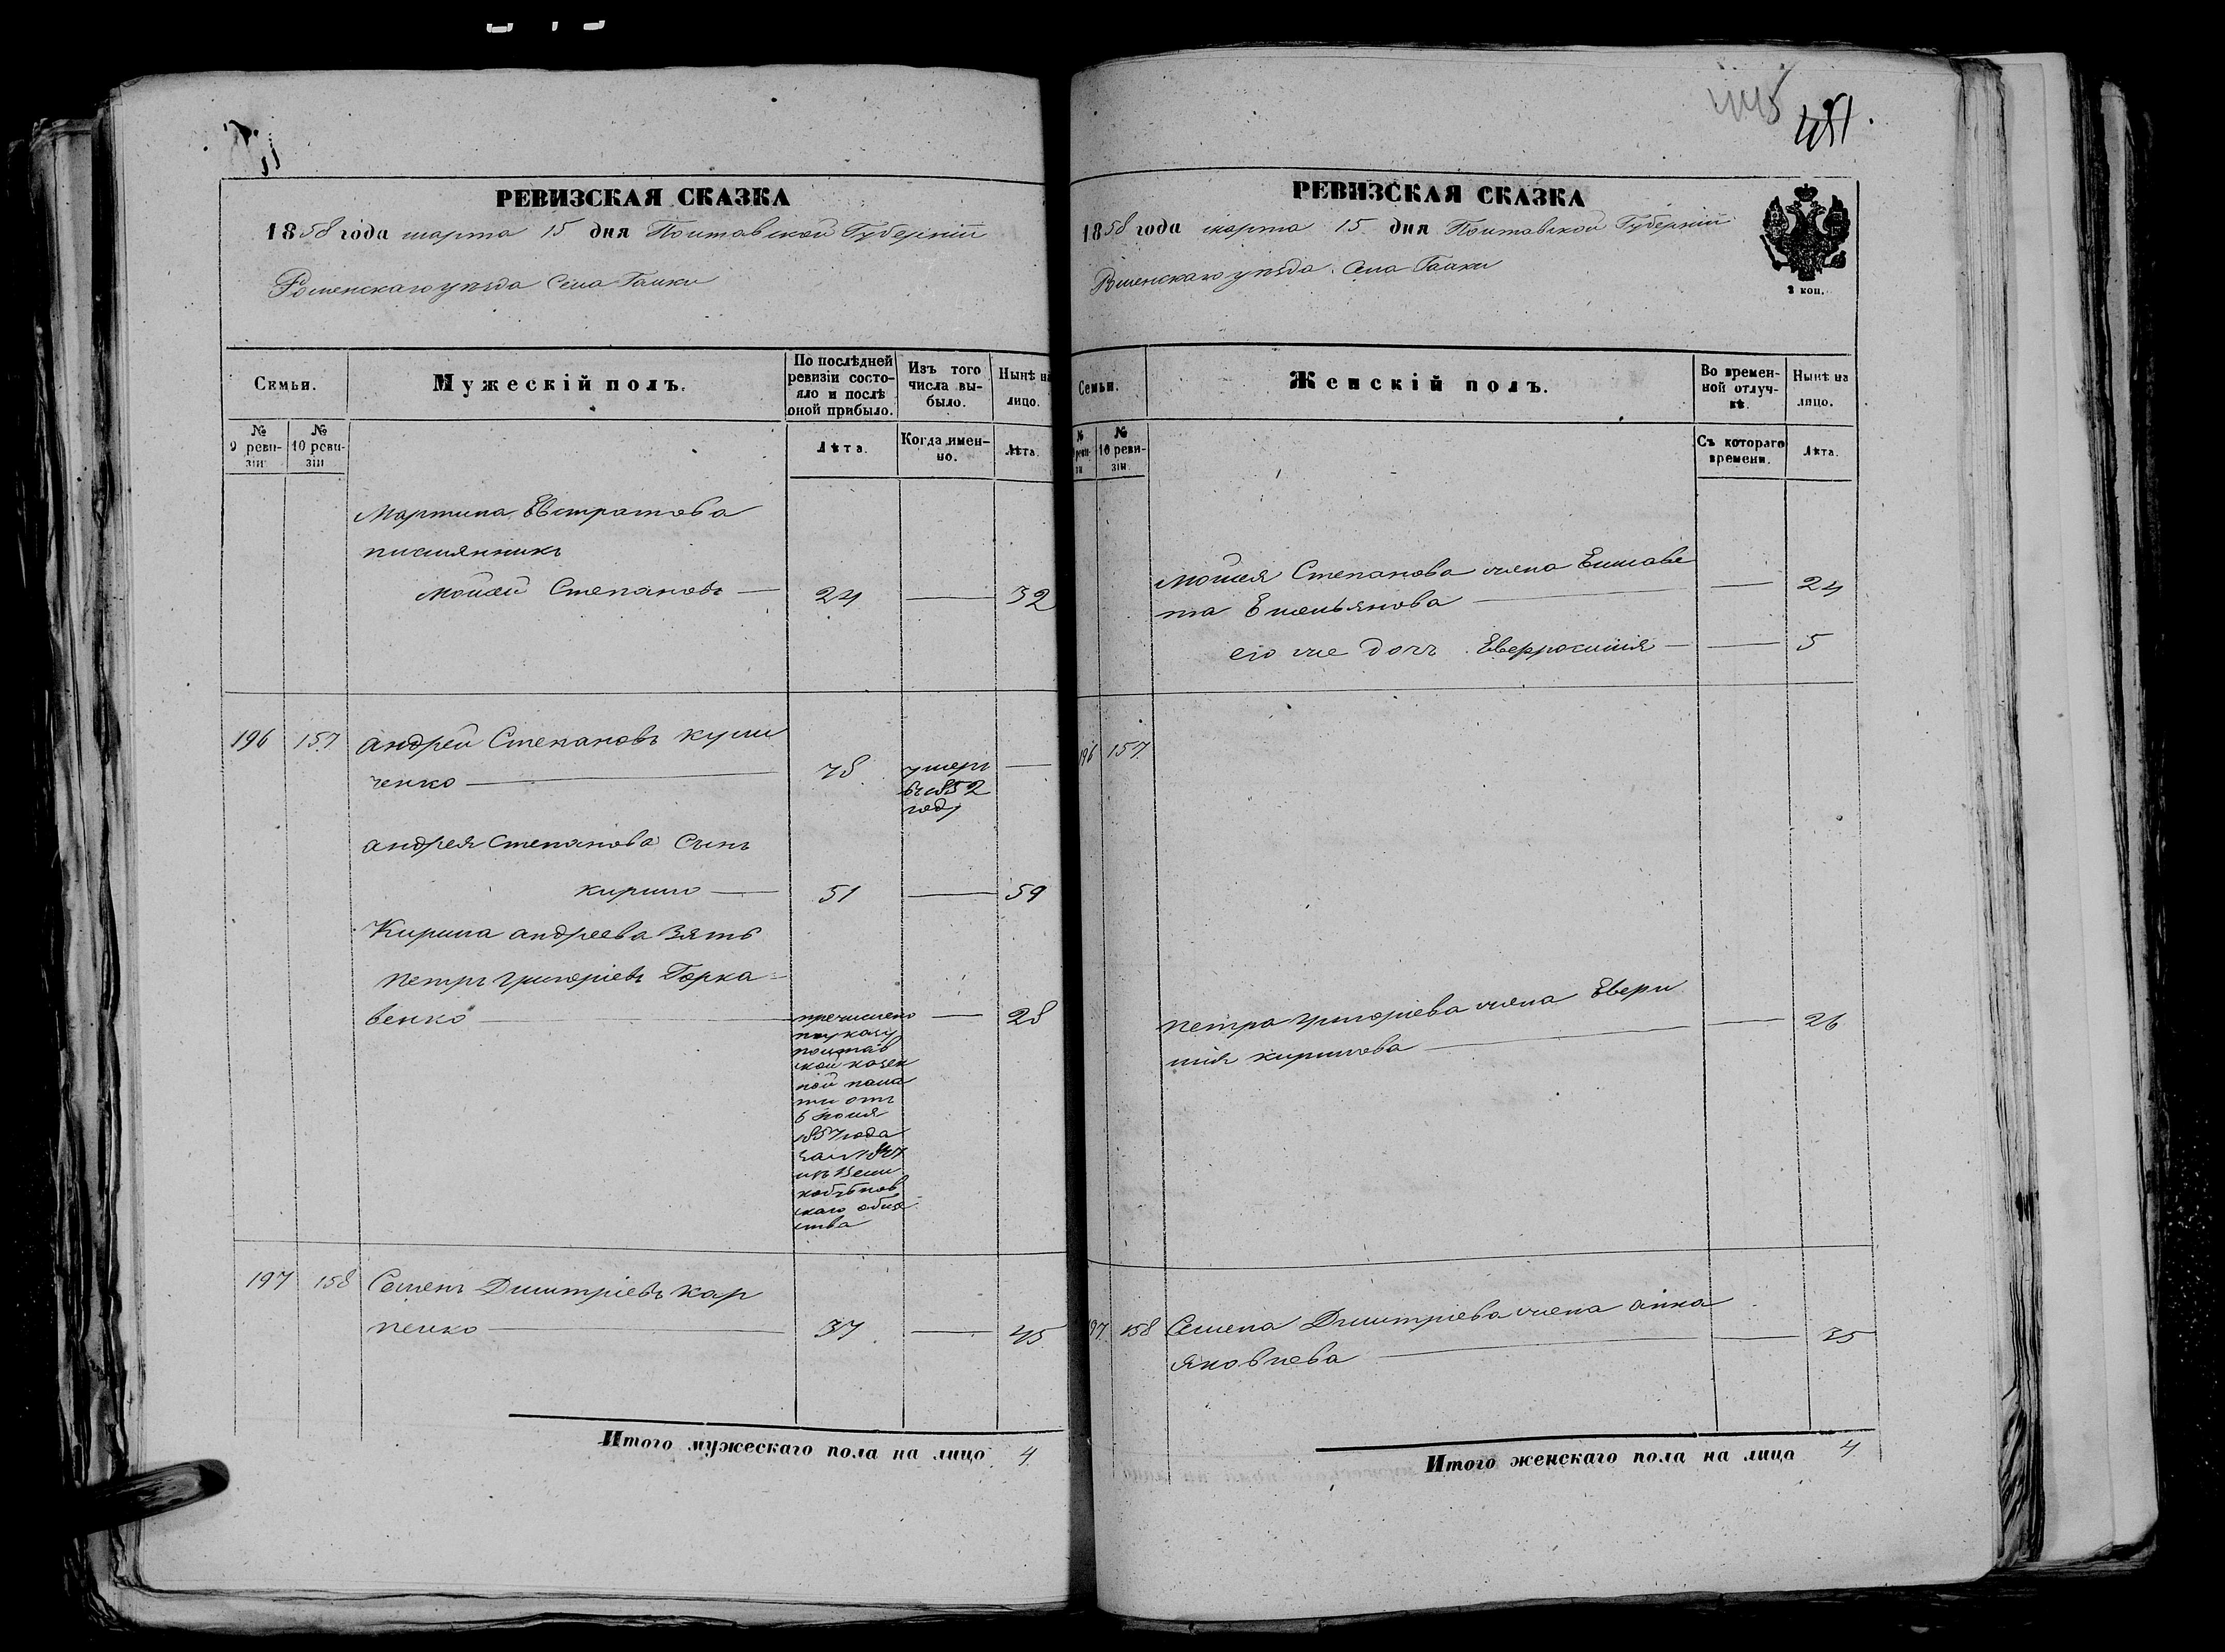 РЕВИЗСКАЯ СКАЗКА
1858 года марта 15 дня Полтавской Губерніи
Роменскаго уезда Села Галки
Семьи.
Мужескій полъ.
По послѣдней ревизіи состояло и послѣ оной прибыло.
Изъ того числа выбыло.
Нынѣ на лицо.
№ 9 ревизіи
№ 10 ревизіи
Лѣта.
Когда именно.
Лѣта.
Мартина Евстратова
племянникъ
Мойсей Степановъ — 24 — 32
196 157 Андрей Степановъ Кули
ченко — 78 умеръ —
въ 1852
году
Андрея Степанова Сынъ
Кирило — 51 — 59
Кирила Андреева Зять
Петръ Григоріевъ Горка-
венко — причислено — 28
по указу
полтав
ской казен
ной пала
ты отъ
6 июля
1857 года
за №
изъ
скаго обще
ства
197 158 Семенъ Дмитріевъ Кар
пенко — 37 — 45
Итого мужескаго пола на лицо 4
445
451.
РЕВИЗСКАЯ СКАЗКА
1858 года марта 15 дня Полтавской Губерніи
Роменскаго уезда Села Галки
2 коп.
Семьи.
Женскій полъ.
Во временной отлучкѣ.
Нынѣ на лицо.
№ 10 ревизіи
Съ котораго времени.
Лѣта.
Мойсея Степанова жена Елисаве
та Емельянова — — 24
его же дочь Евфросинія — — 5
196 157
Петра Григоріева жена Евги
нія Кирилова — — 26
197 158 Семена Дмитріева жена Анна
Яковлева — — 35
Итого женскаго пола на лицо 4